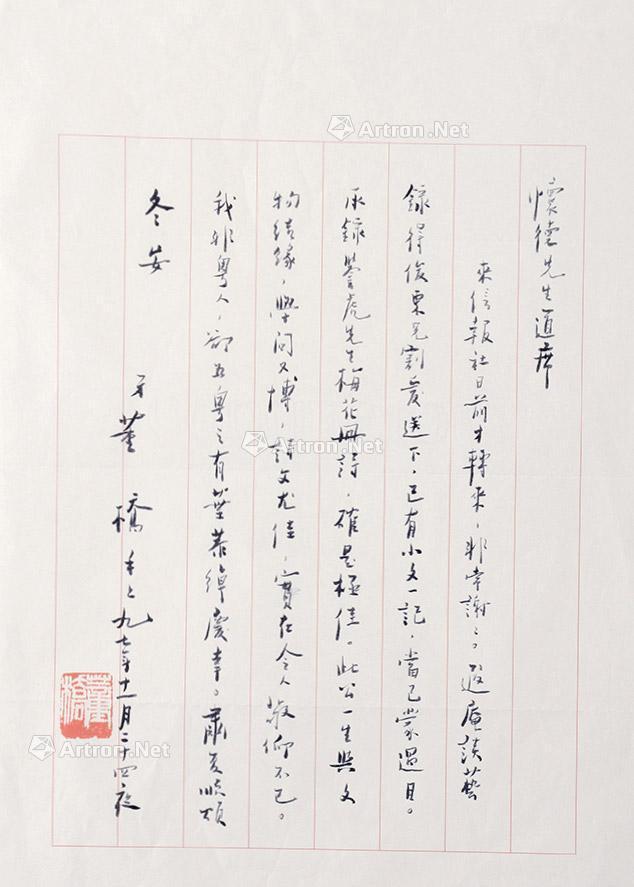 懷德先生道席
來信報社日前才轉來，非常謝〻。遐庵談藝
錄得俊東兄割愛送下，已有小文一記，當已蒙過目。
承錄譽虎先生梅花冊詩，確是極佳。此公一生與文
物結緣，學問又博，詩文尤佳，實在令人敬仰不已。
我非粵人，卻為粵之有葉恭綽慶幸。肅覆順頌
冬安
弟董橋手上九七年十一月二十四夜
董橋
Artron.Net
Artron.Net
Artron.Net